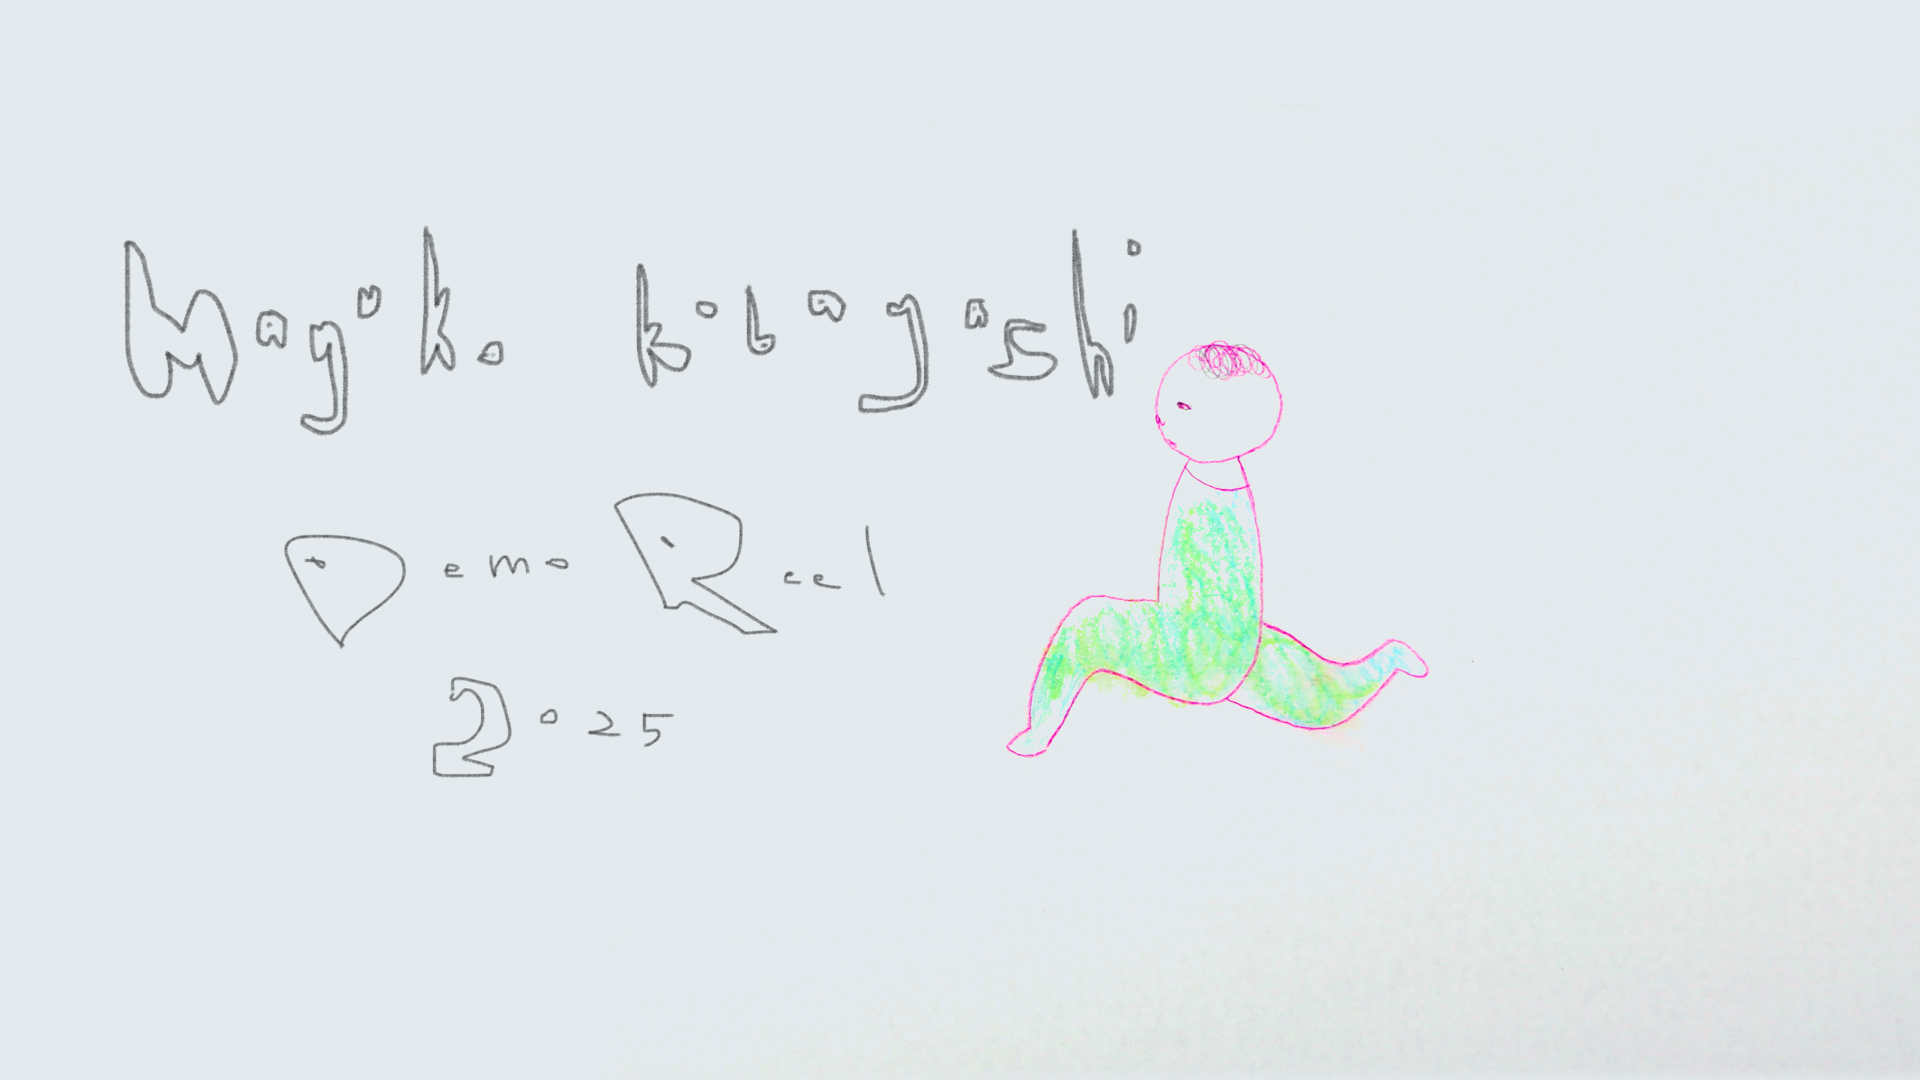 Mayuko kobayashi
Demo Reel
2025